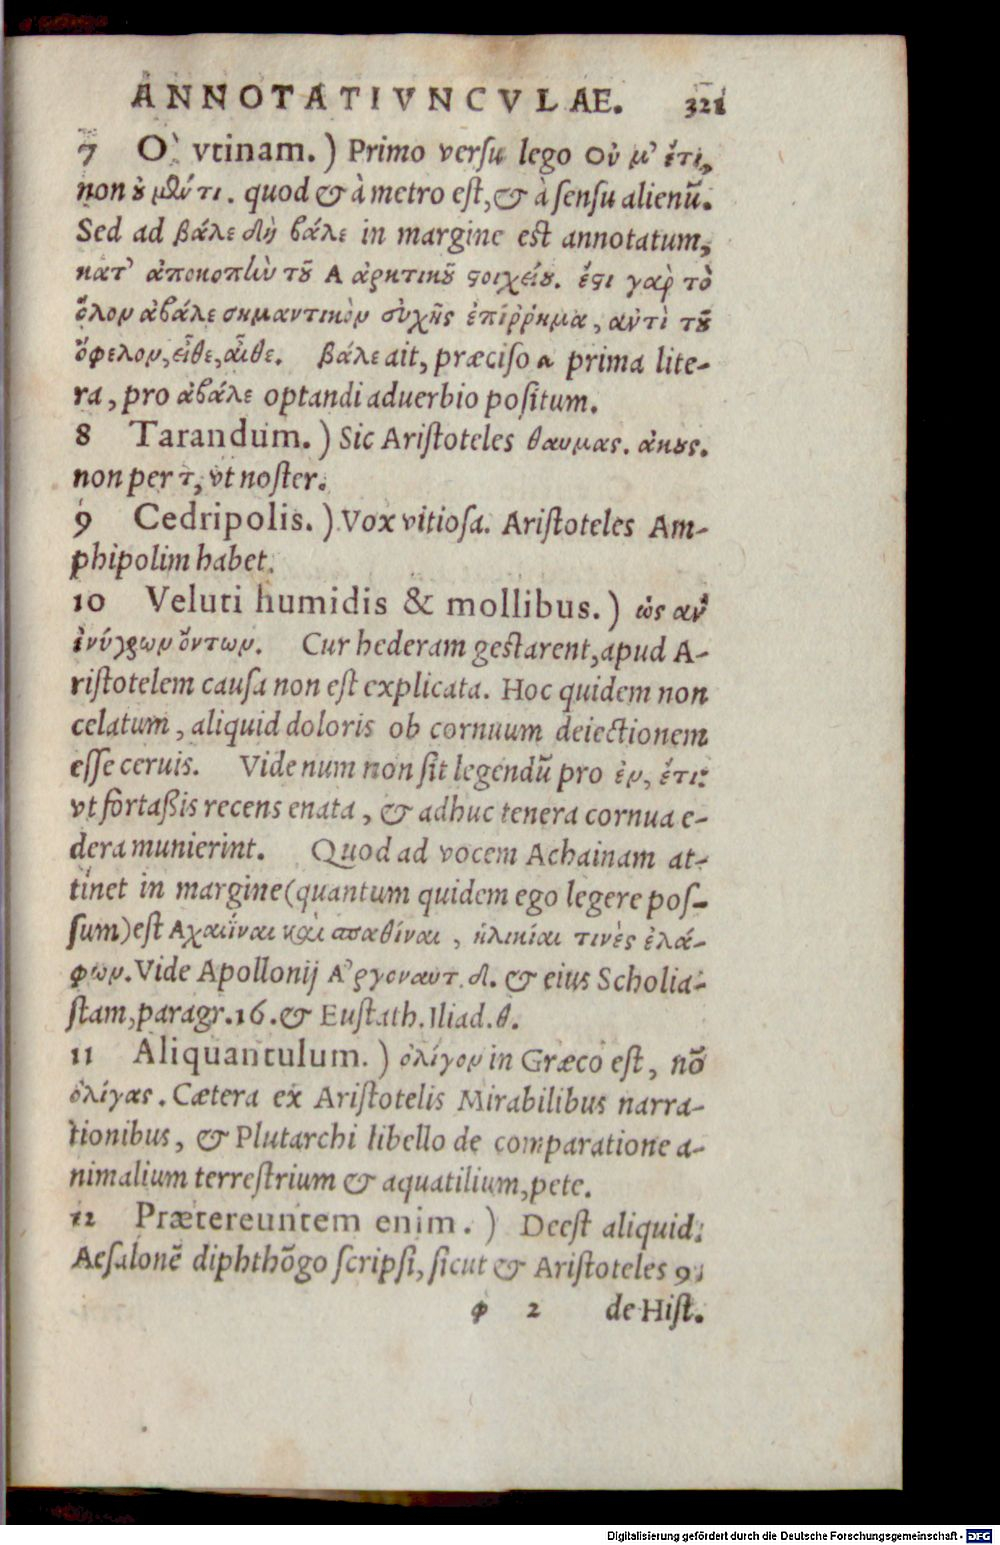 ANNOTATIVNCVLAE. 321
7 O' vtinam.) Primo versu lego Οὐ μ' ἔτι,
non ȣ̓ μὼν τι. quod & à metro est, & à sensu alienũ.
Sed ad βάλε δὴ βάλε in margine est annotatum,
κατ' ἀποκοπὴν τȣ͂ Α ἀρκτικȣ͂ ϛοιχείȣ. ἔϛι γὰρ τὸ
ὅλον ἀβάλε σημαντικὸν σὐχῆς ἐπίῤῥημα, ἀντὶ τȣ͂
ὄφελον, εἴθε, αἴθε. βάλε ait, præciso a prima lite-
ra, pro ἀβάλε optandi aduerbio positum.
8 Tarandum.) Sic Aristoteles θαυμας. ἀκȣς.
non per τ, vt noster.
9 Cedripolis.) Vox vitiosa. Aristoteles Am-
phipolim habet.
10 Veluti humidis & mollibus.) ὡς ἂν
ἐνύγρων ὄντων. Cur hederam gestarent, apud A-
ristotelem causa non est explicata. Hoc quidem non
celatum, aliquid doloris ob cornuum deiectionem
esse ceruis. Vide num non sit legendũ pro ἐν, ἔτι:
vt fortaßis recens enata, & adhuc tenera cornua e-
dera munierint. Quod ad vocem Achainam at-
tinet in margine (quantum quidem ego legere pos-
sum) est Αχαιΐναι καὶ σπαθίναι, ἡλικίαι τινὲς ἐλά-
φων. Vide Apollonij Α'ργοναυτ. δ. & eius Scholia-
stam, paragr. 16. & Eustath. Iliad. θ.
11 Aliquantulum.) ὀλίγον in Græco est, nõ
ὀλίγας. Cætera ex Aristotelis Mirabilibus narra-
tionibus, & Plutarchi libello de comparatione a-
nimalium terrestrium & aquatilium, pete.
12 Prætereuntem enim.) Deest aliquid:
Aesalonẽ diphthõgo scripsi, sicut & Aristoteles 9.
φ 2 de Hist.
Digitalisierung gefördert durch die Deutsche Forschungsgemeinschaft - DFG